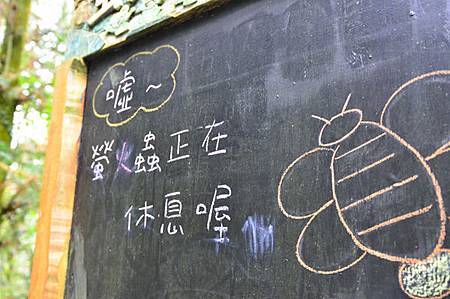 噓~
螢火蟲正在
休息喔